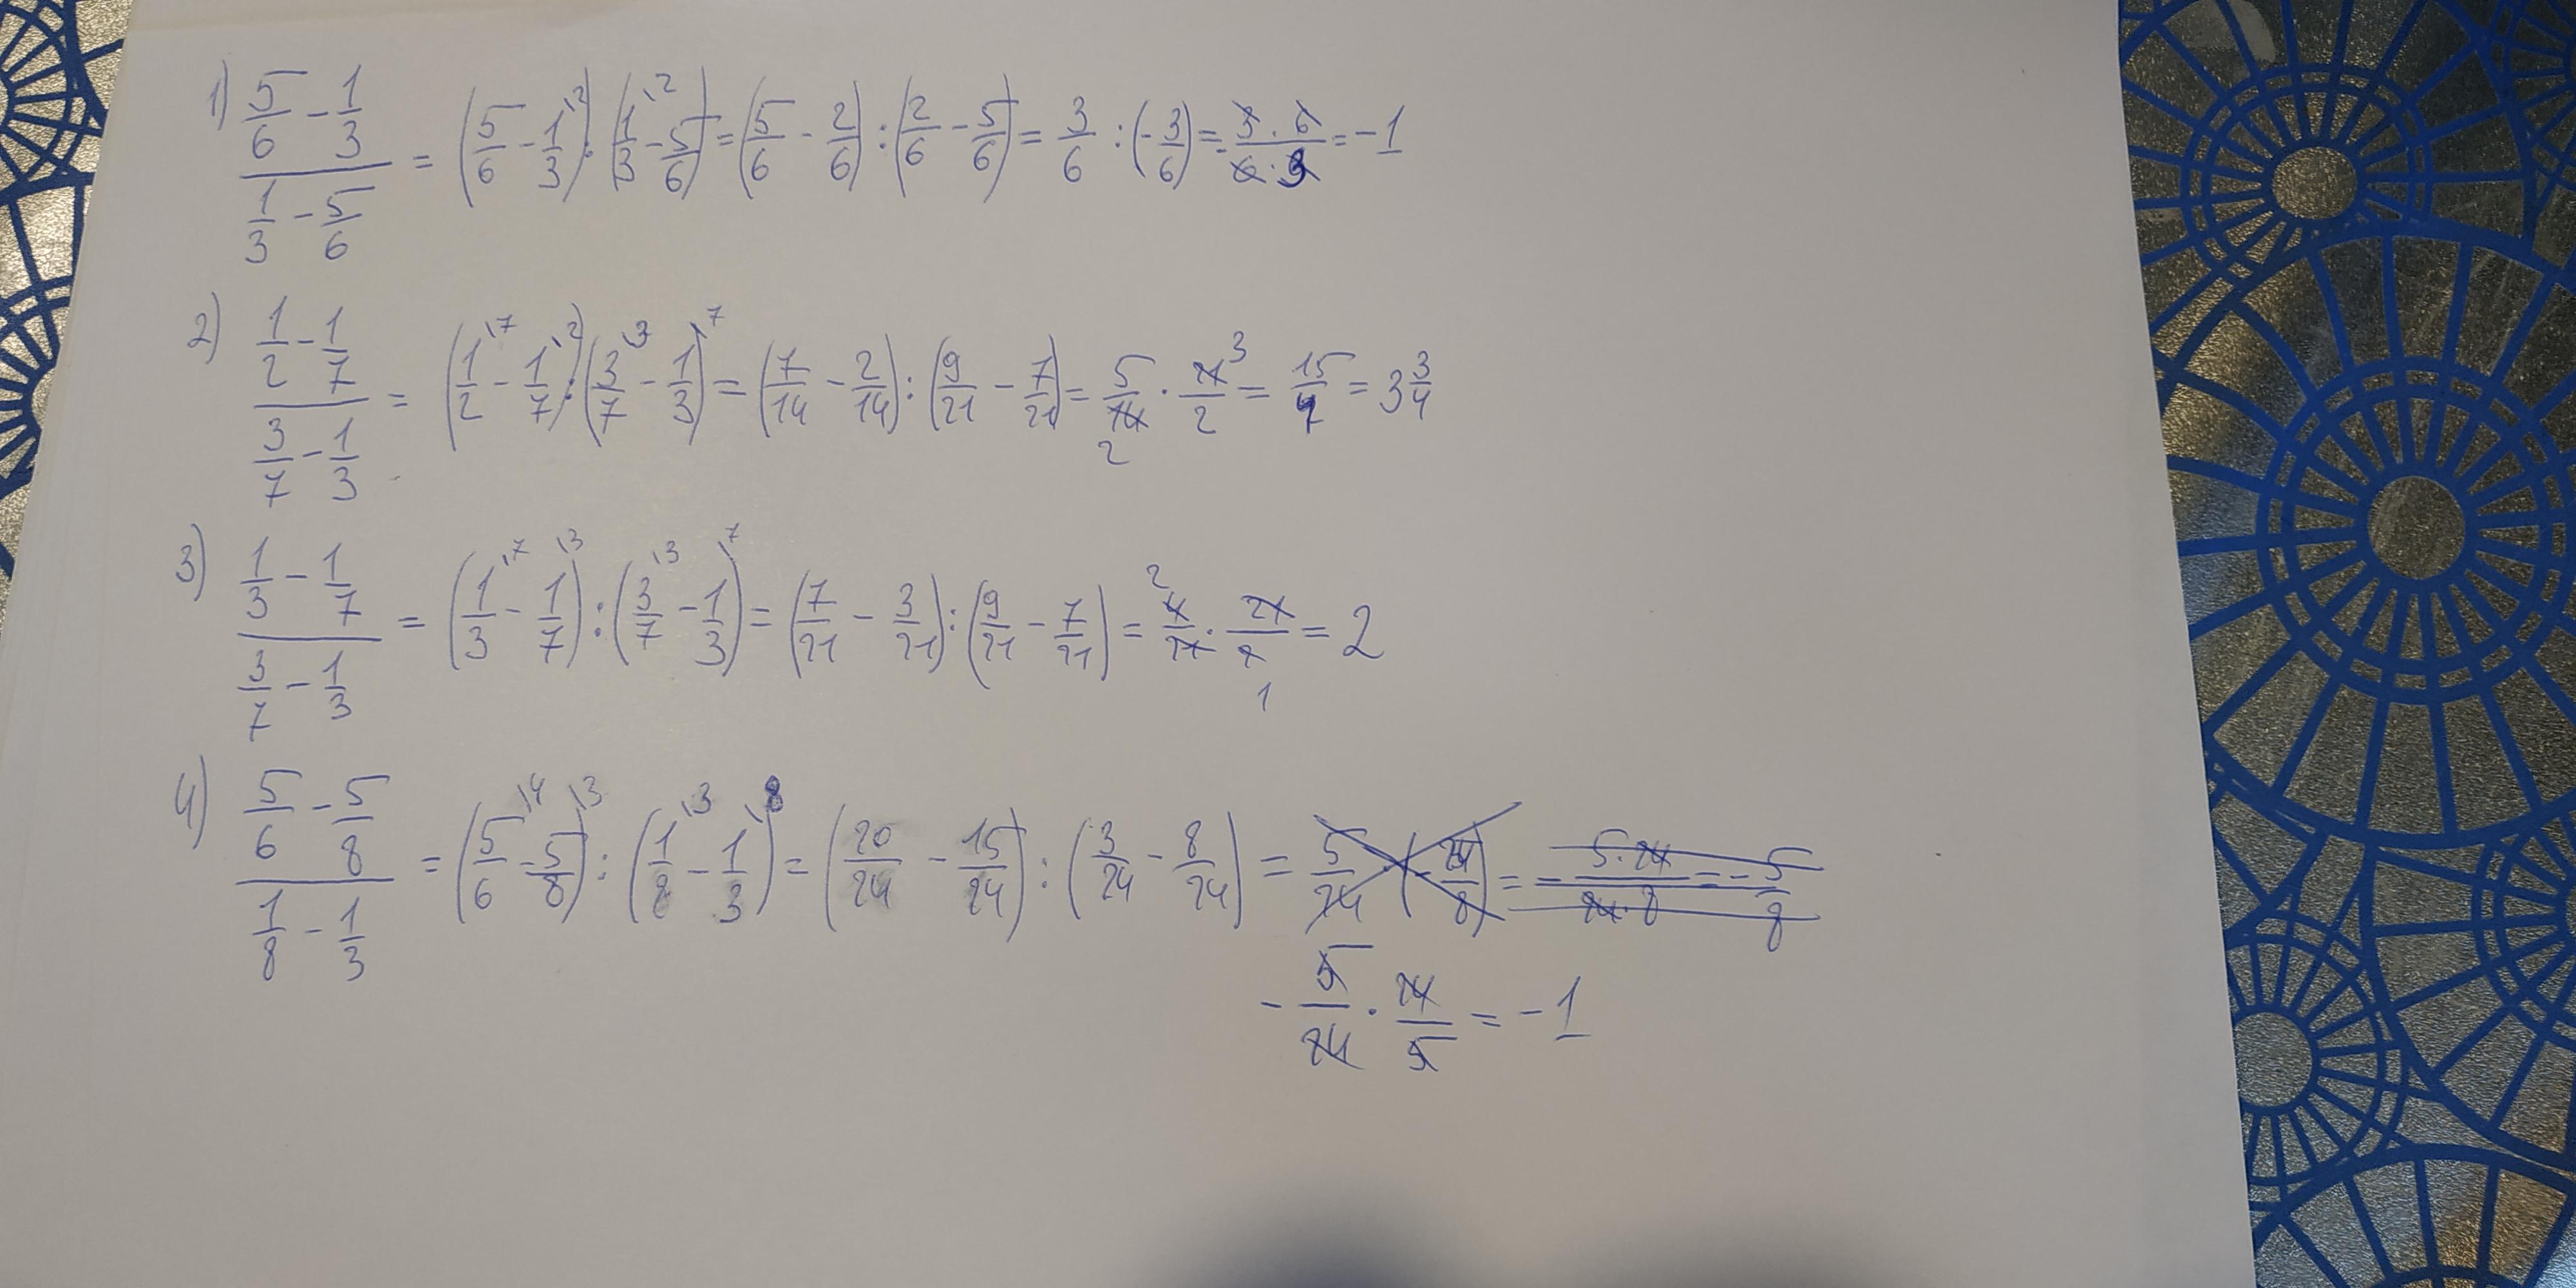 1) (5/6 - 1/3)/(1/3 - 5/6) = (5/6 - 1/3\2) : (1/3\2 - 5/6) = (5/6 - 2/6) : (2/6 - 5/6) = 3/6 : (-3/6) = - (3 · 6)/(6 · 3) = -1
2) (1/2 - 1/7)/(3/7 - 1/3) = (1/2\7 - 1/7\2) : (3/7\3 - 1/3\7) = (7/14 - 2/14) : (9/21 - 7/21) = 5/14 2 · 21 3/2 = 15/4 = 3 3/4
3) (1/3 - 1/7)/(3/7 - 1/3) = (1/3\7 - 1/7\3) : (3/7\3 - 1/3\7) = (7/21 - 3/21) : (9/21 - 7/21) = 2 4/21 · 21/2 1 = 2
4) (5/6 - 5/8)/(1/8 - 1/3) = (5/6\4 - 5/8\3) : (1/8\3 - 1/3\8) = (20/24 - 15/24) : (3/24 - 8/24) = 5/24 (-24/8) = - (5 · 24)/(24 · 8) = - 5/8
- 5/24 · 24/5 = -1